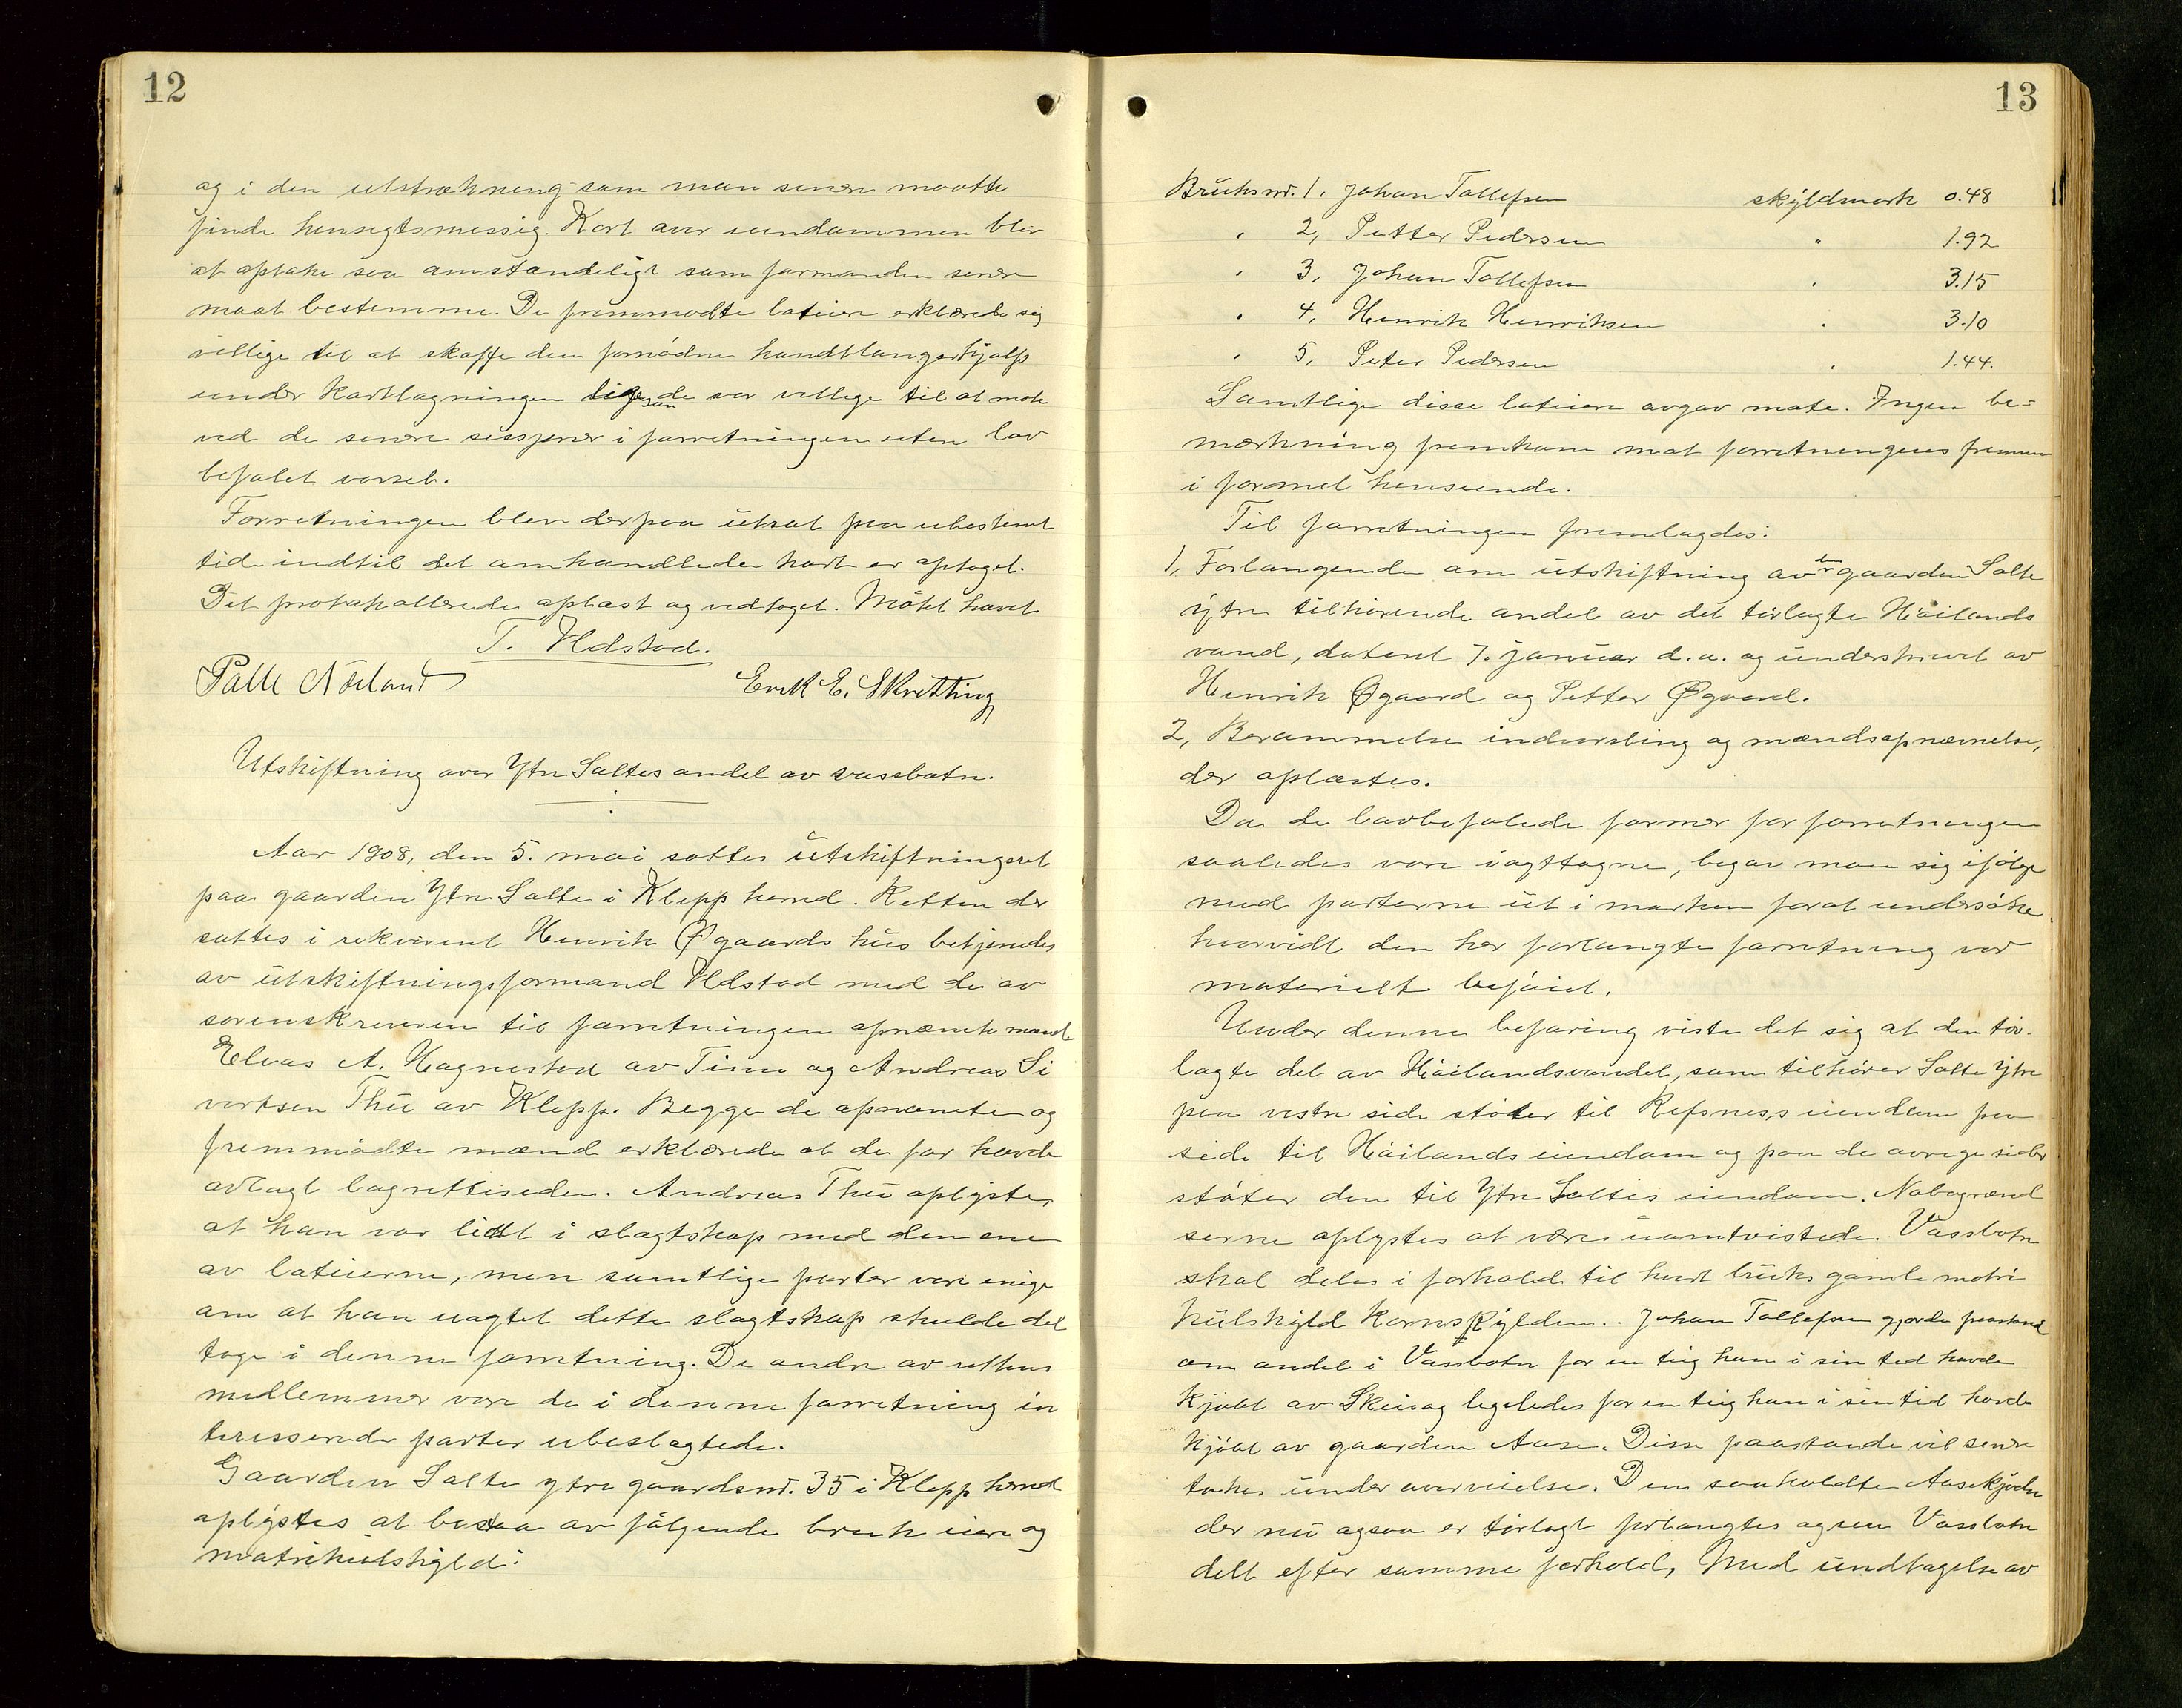 12
og i den utstrækning som man senere maatte
finde hensigtsmessig. Kart over eiendommen blir
at optake saa omstændeligt som formanden senere
maat bestemme. De fremmødte lotteiere erklærede sig
villige til at skaffe den fornødne handtlangerhjælp
under kartlægningen ligesaa de var villege til at møte
ved de senere sessjoner i forretningen uten lov
befalet varsel.
Forretningen blev derpaa utsat paa ubestemt
tid indtil det omhandlede kart er optaget.
Det protokollerede oplæst og vedtaget. Mötet hævet
T. Helstad.
Palle Nörland Erik E. Skretting
Utskiftning over Ytre Saltes andel av vassbotn.
Aar 1908, den 5. mai sattes utskiftningsret
paa gaarden Ytre Salte i Klepp herred. Retten der
sattes i rekvirent Henrik Øgaards hus betjenedes
av utskiftningsformand Helstad med de av
sorenskriveren til forretningen opnævnte mænd
Elias A. Hagnestad av Time og Andreas Si
vertsen Thu av Klepp. Begge de opnævnte og
fremmødte mænd erklærede at de før havde
avlagt lagretteseden. Andreas Thu oplyste,
at han var lidt i slagtskap med den ene
av lotteierne, men samtlige parter vare enige
om at han uagtet dette slagtskap skulde del
tage i denne forretning. De andre av rettens
medlemmer vare de i denne forretning in
teresserede parter ubeslagtede.
Gaarden Salte ytre gaardsnr. 35 i Klepp herred
oplystes at bestaa av følgende bruk eiere og
matrikulskyld:
13
Bruksnr. 1, Johan Tollefsen skyldmark 0.48
" 2, Petter Pedersen " 1.92
" 3, Johan Tollefsen " 3.15
" 4, Henrik Henriksen " 3.10
" 5, Peter Pedersen " 1.44.
Samtlige disse lotteiere avgav møte. Ingen be=
mærkning fremkom mot forretningens fremme
i formel henseende.
Til forretningen fremlagdes:
1, Forlangende om utskiftning av den gaarden Salte
ytre tilhørende andel av det tørlagte Høilands
vand, dateret 7. januar d.a. og underskrevet av
Henrik Øgaard og Petter Øgaard.
2, Berammelse indvarsling og mændsopnævnelse,
der oplæstes.
Da de lovbefalede former for forretningen
saaledes vare iagttagne, begav man sig ifølge
med parterne ut i marken forat undersøke
hvorvidt den her forlangte forretning var
materielt beføiet.
Under denne befaring viste det sig at den tør-
lagte del av Høilandsvandet, som tilhører Salte Ytre
paa vestre side støter til Refsnes eiendom paa
side til Høilands eiendom og paa de øvrige sider
støter den til Ytre Saltes eiendom. Nabogrænd
serne oplystes at være uomtvistede. Vassbotn
skal deles i forhold til hvert bruks gamle matri
kulskyld Kornskylden. Johan Tollefsen gjorde paastand
om andel i Vassbotn for en teig han i sin tid havde
kjøbt av Skeie og ligeledes for en teig han i sin tid havde
kjøbt av gaarden Aase. Disse paastande vil senere
takes under overveielse. Den saakaldte Aasekjøden
der nu ogsaa er tørlagt forlangtes ogsaa Vassbotn
delt efter samme forhold, Med undtagelse av